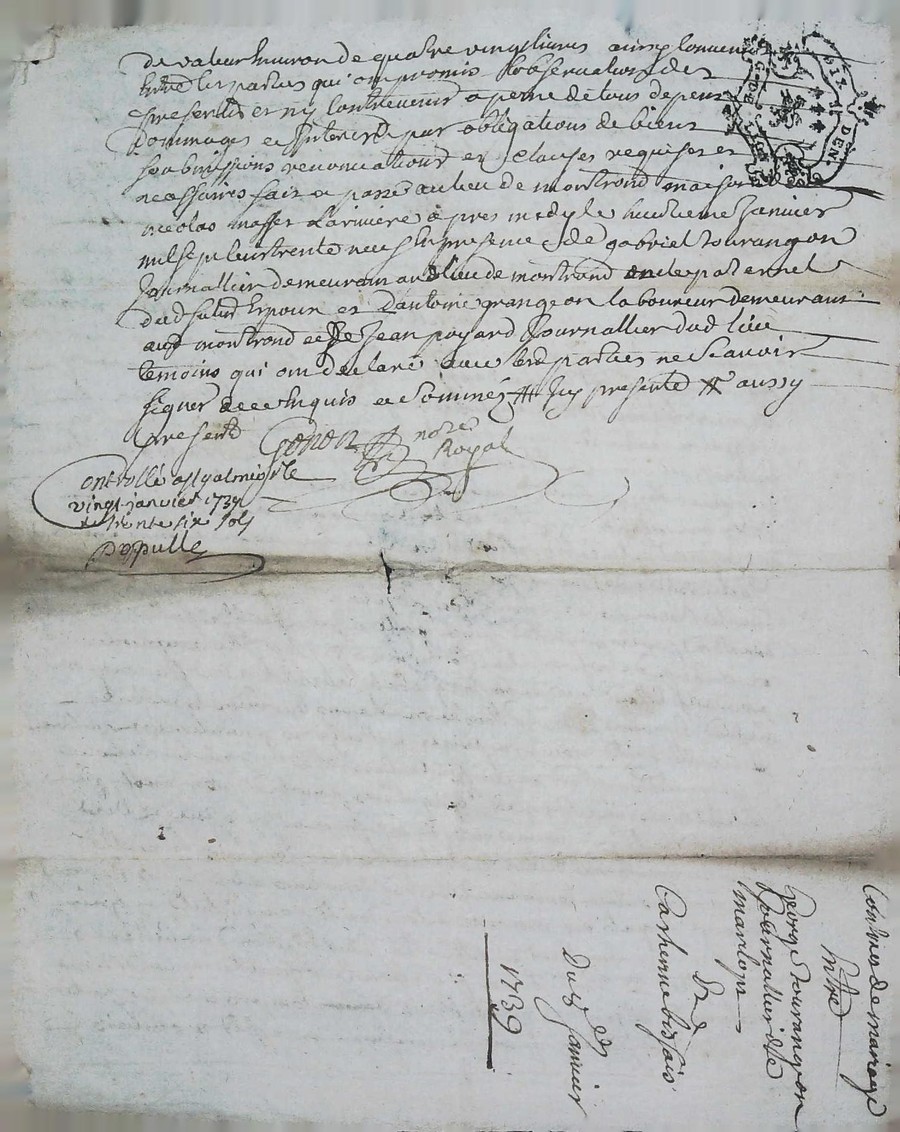 de valeur environ de quatre vingt livres ainsy convenu
entre les parties qui ont promis l'observation des
presentes et n'y contrevenir a peine de tous depens
dommages et interests par obligations de biens
soubmissions renonciations et clauses requises et
necessaires fait et passé au lieu de montrond maison de
nicolas apres midy le huitieme Janvier
mil sept cent trente neuf en presence de gabriel tourangon
Journallier demeurant aud lieu de montrond oncle paternel
dud futur Epoux et d'antoine grangeon laboureur demeurant
aud montrond et de Jean poyard Journallier dud lieu
temoins qui ont declaré avec lesd parties ne scavoir
signer de ce enquis et sommés aussy
presente
Gonon nore
Royal
Controllé a st galmier le
vingt janvier 1739
trente six sols
populle
Contract de mariage
Entre
George tourangon
Journallier de
Et
Catherine bissois
Du 8 Janvier
1739
G. DE
DEN